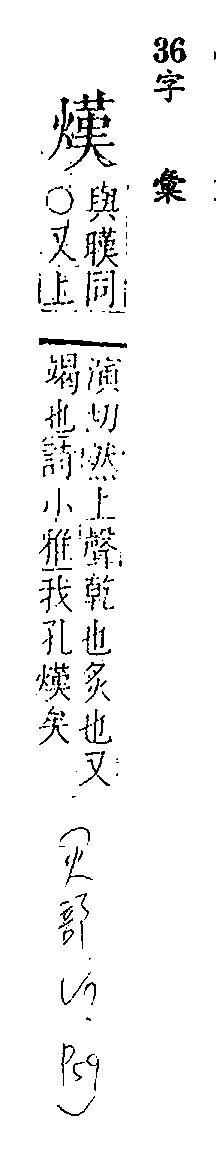 36字彙
熯
與暵同
○又上
演切然上聲乾也炙也又
竭也詩小雅我孔熯矣
(火部
P59)